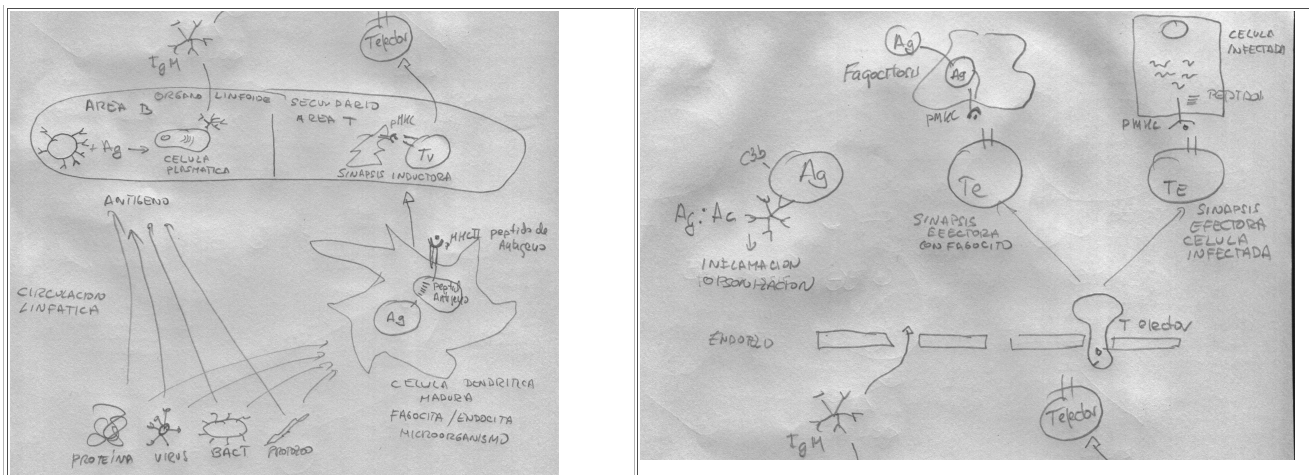 IgM
Tefector
AREA B
ORGANO LINFOIDE
SECUNDARIO
AREA T
pMHC
+ Ag →
CELULA
PLASMATICA
Tv
SINAPSIS INDUCTORA
ANTIGENO
MHCII
peptido de
Antigeno
CIRCULACION
LINFATICA
Ag
CELULA DENDRITICA
MADURA
FAGOCITA / ENDOCITA
MICROORGANISMO
PROTEÍNA
VIRUS
BACT
Ag
Fagocitosis
Ag
pMHC
CELULA
INFECTADA
PMHC
C3b
Ag
Te
TE
Ag:Ac
INFLAMACION
OPSONIZACION
SINAPSIS
EFECTORA
CON FAGOCITO
SINAPSIS
EFECTORA
CELULA
INFECTADA
T efector
ENDOTELIO
IgM
Tefector